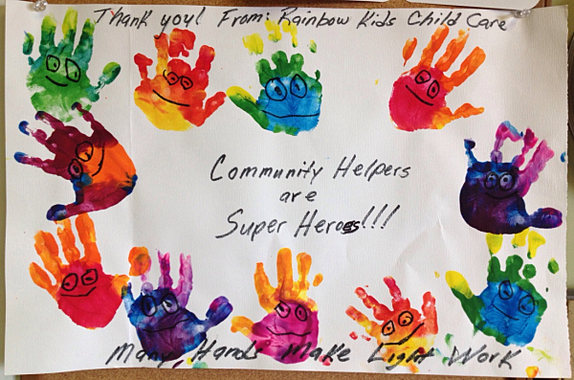 Thank you! From: Rainbow Kids Child Care
Community Helpers
are
Super Heroes!!!
Many Hands Make Light Work